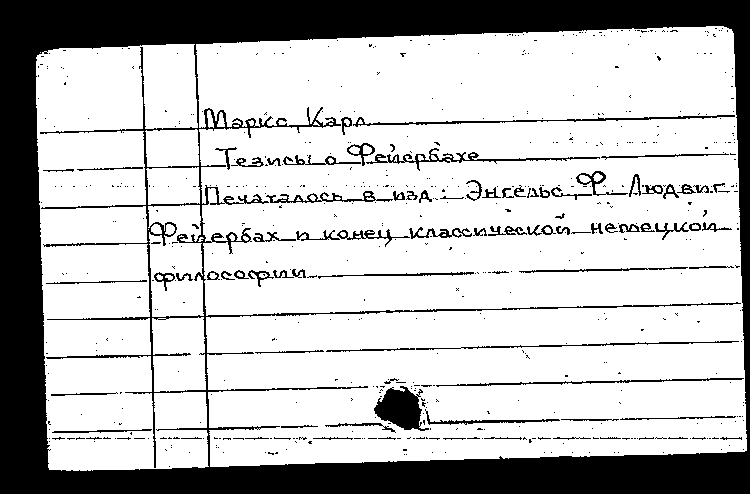 Маркс, Карл
Тезисы о Фейербахе
Печаталось в изд: Энгельс, Ф. Людвиг
Фейербах и конец классической немецкой
философии